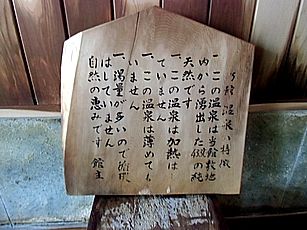 当館温泉の特徴
一、この温泉は当館敷地
内から湧出した の純
天然です
一、この温泉は加熱は
ていません
一、この温泉は薄めても
いません
一、湯量が多いので循環
はしていません
自然の恵みです 館主